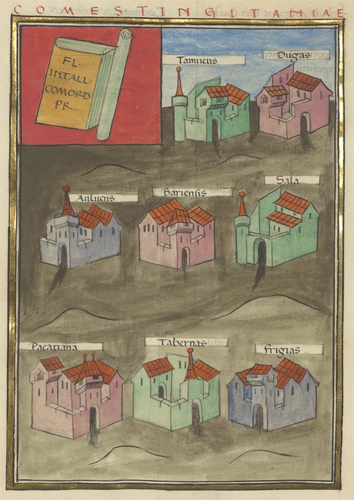 COMES TINGITANIAE
FL
INTALL
COMORD
PR
Tamucus
Dugas
Aulucus
Bariensis
Sala
Pacatiana
Tabernas
Frigias